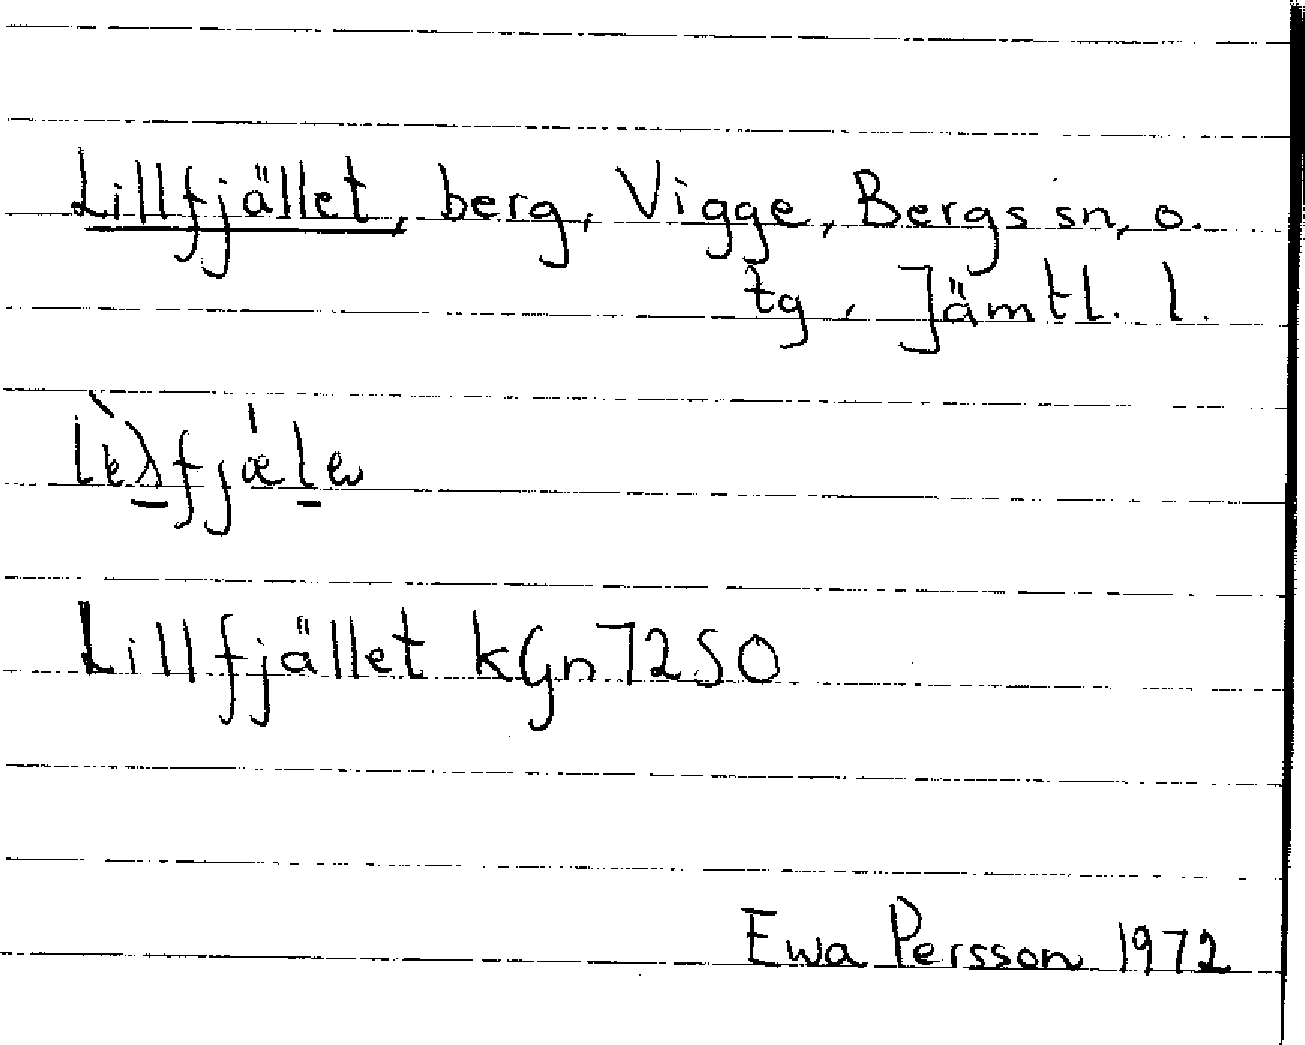 Lillfjället, berg, Vigge, Bergs sn, o.
tg, Jämtl. l.
Lillfjället kGn 7250
Ewa Persson 1972